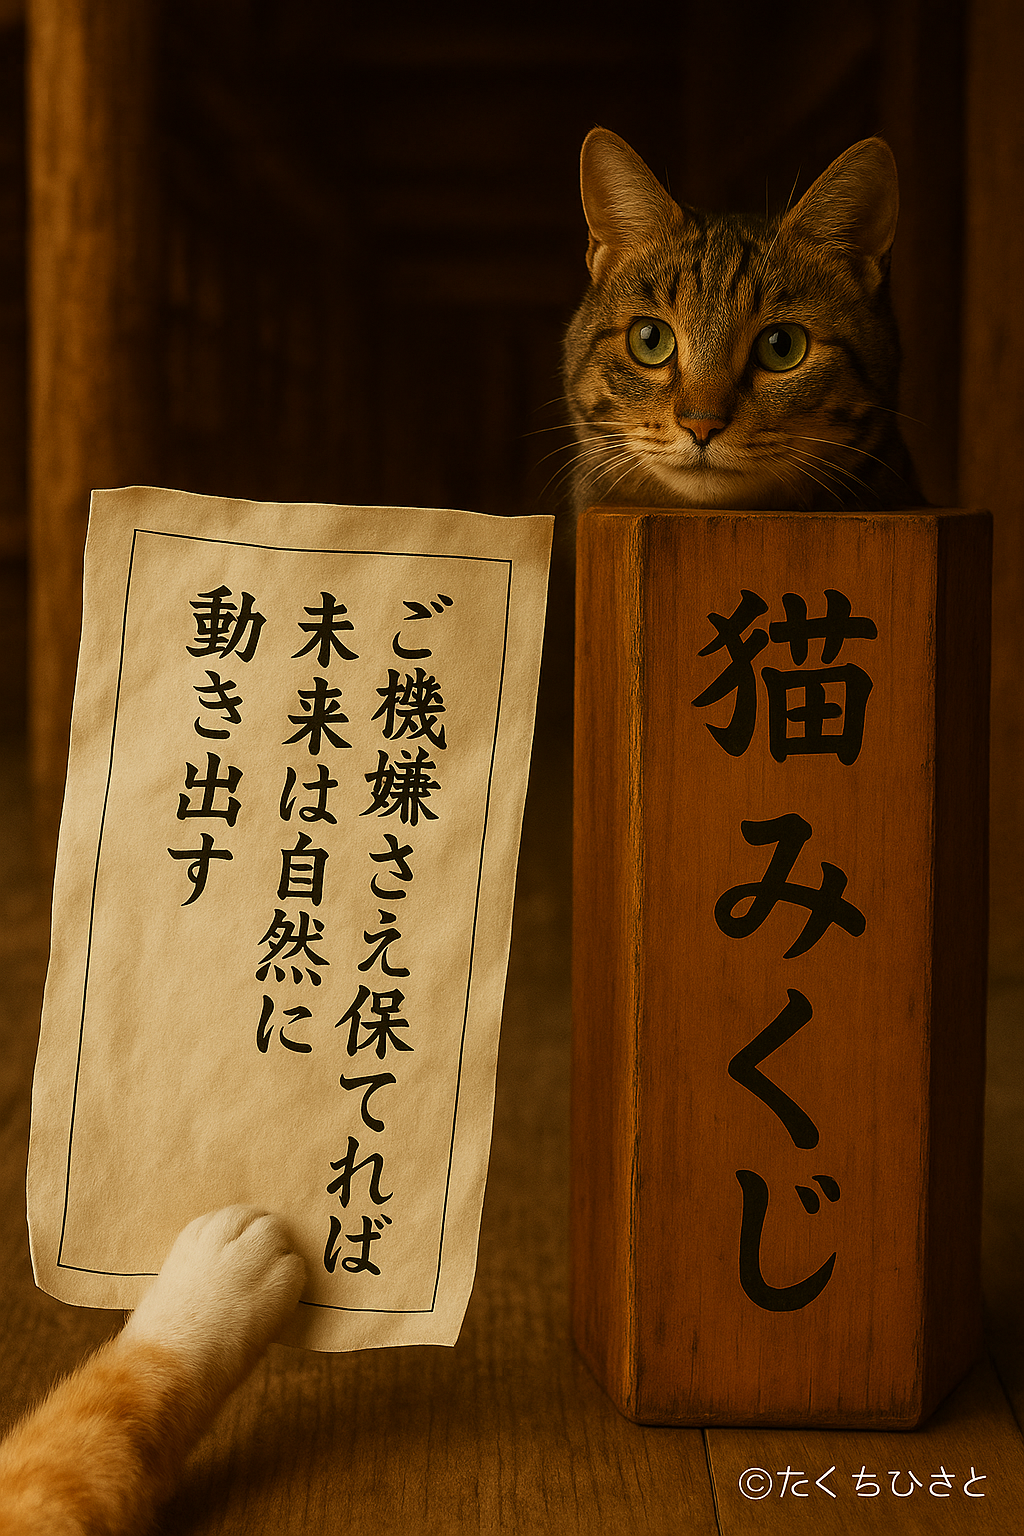 ご機嫌さえ保てれば
未来は自然に
動き出す
猫みくじ
©たくちひさと